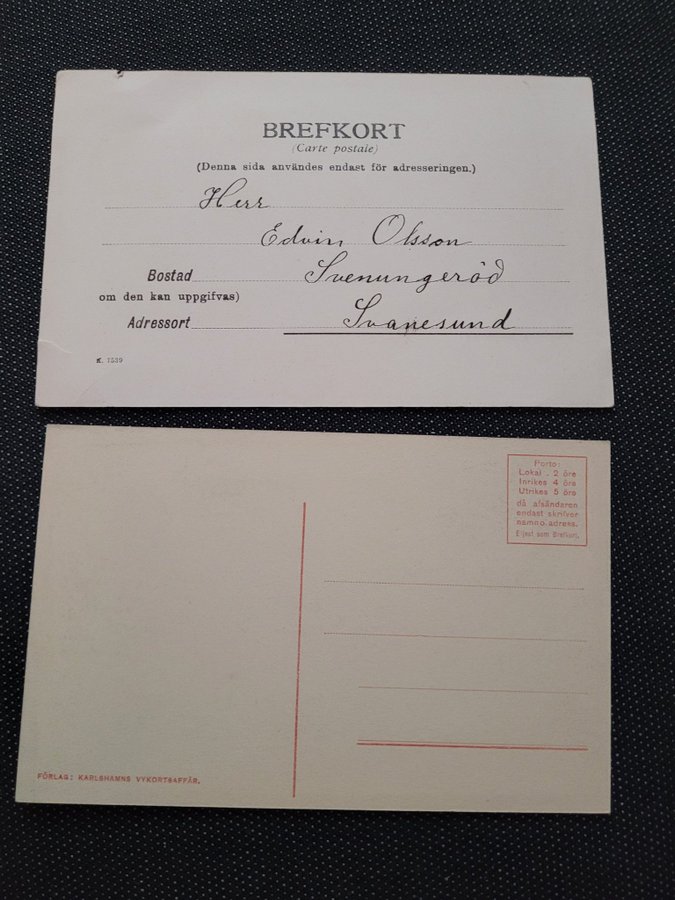 BREFKORT
(Carte postale)
(Denna sida användes endast för adresseringen.)
Herr
Edvin Olsson
Bostad Svenungeröd
om den kan uppgifvas)
Adressort Svanesund
K. 1539
Porto:
Lokal . 2 öre
Inrikes 4 öre
Utrikes 5 öre
då afsändaren
endast skrifver
namn o. adress.
Eljest som Brefkort.
FÖRLAG: KARLSHAMNS VYKORTSAFFÄR.